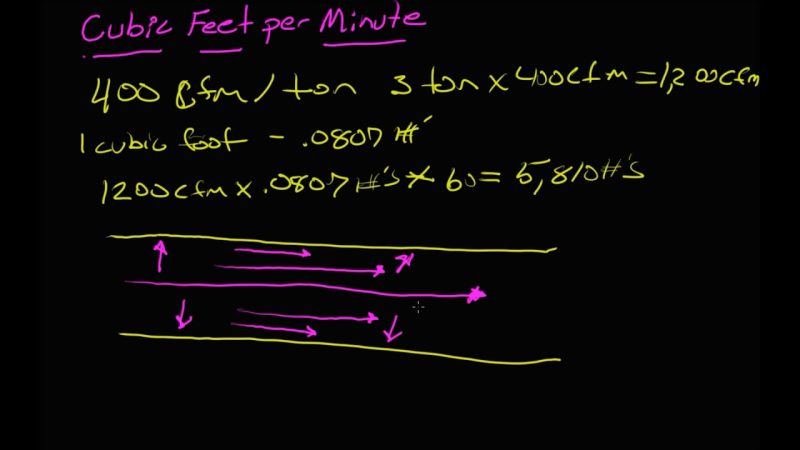 Cubic Feet per Minute
400 Cfm/ton 3 ton x 400cfm = 1,200cfm
1 cubic foot - .0807 #'
1200cfm x .0807 #'s x 60 = 5,810#'s